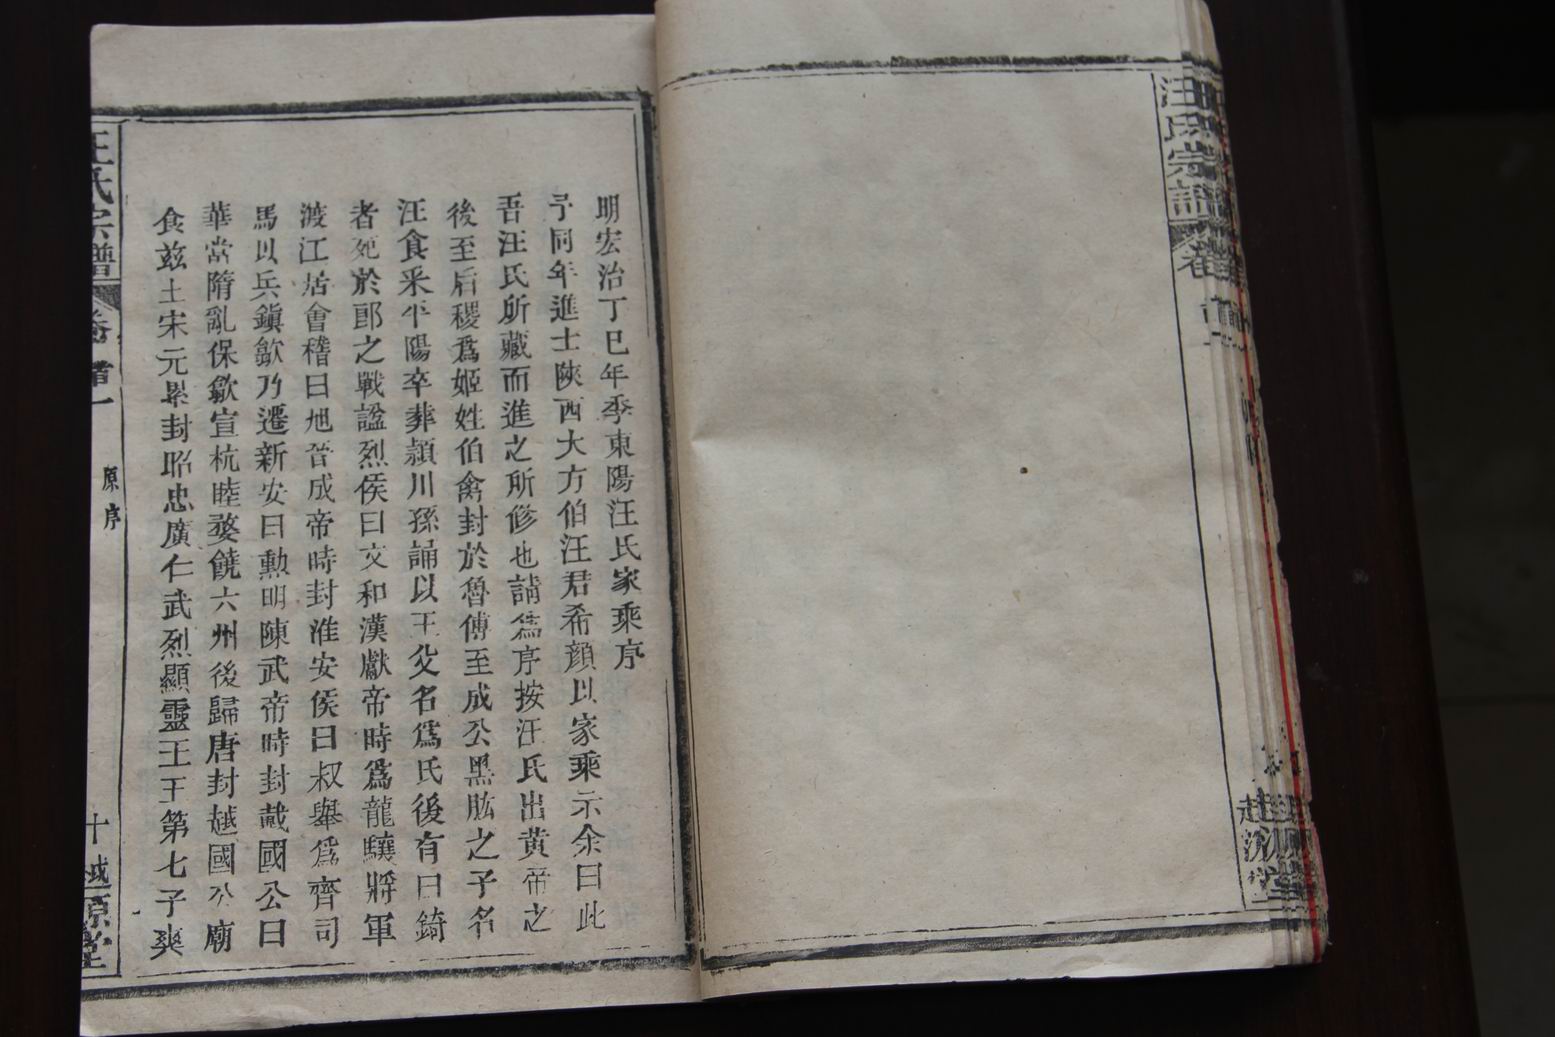 明宏治丁巳年季東陽汪氏家乘序
予同年進士陝西大方伯汪君希顏以家乘示余曰此
吾汪氏所藏而進之所修也請爲序按汪氏出黃帝之
後至后稷爲姬姓伯禽封於魯傳至成公黑肱之子名
汪食采平陽卒葬潁川孫誦以王父名爲氏後有曰錡
者死於郎之戰諡烈侯曰文和漢獻帝時爲龍驤將軍
渡江居會稽曰旭晉成帝時封淮安侯曰叔舉爲齊司
馬以兵鎭歙乃遷新安曰勳明陳武帝時封戴國公曰
華當隋亂保歙宣杭睦婺饒六州後歸唐封越國公廟
食兹土宋元累封昭忠廣仁武烈顯靈王王第七子爽
汪氏宗譜 卷首一 原序 十 越源堂
汪氏宗譜 卷首